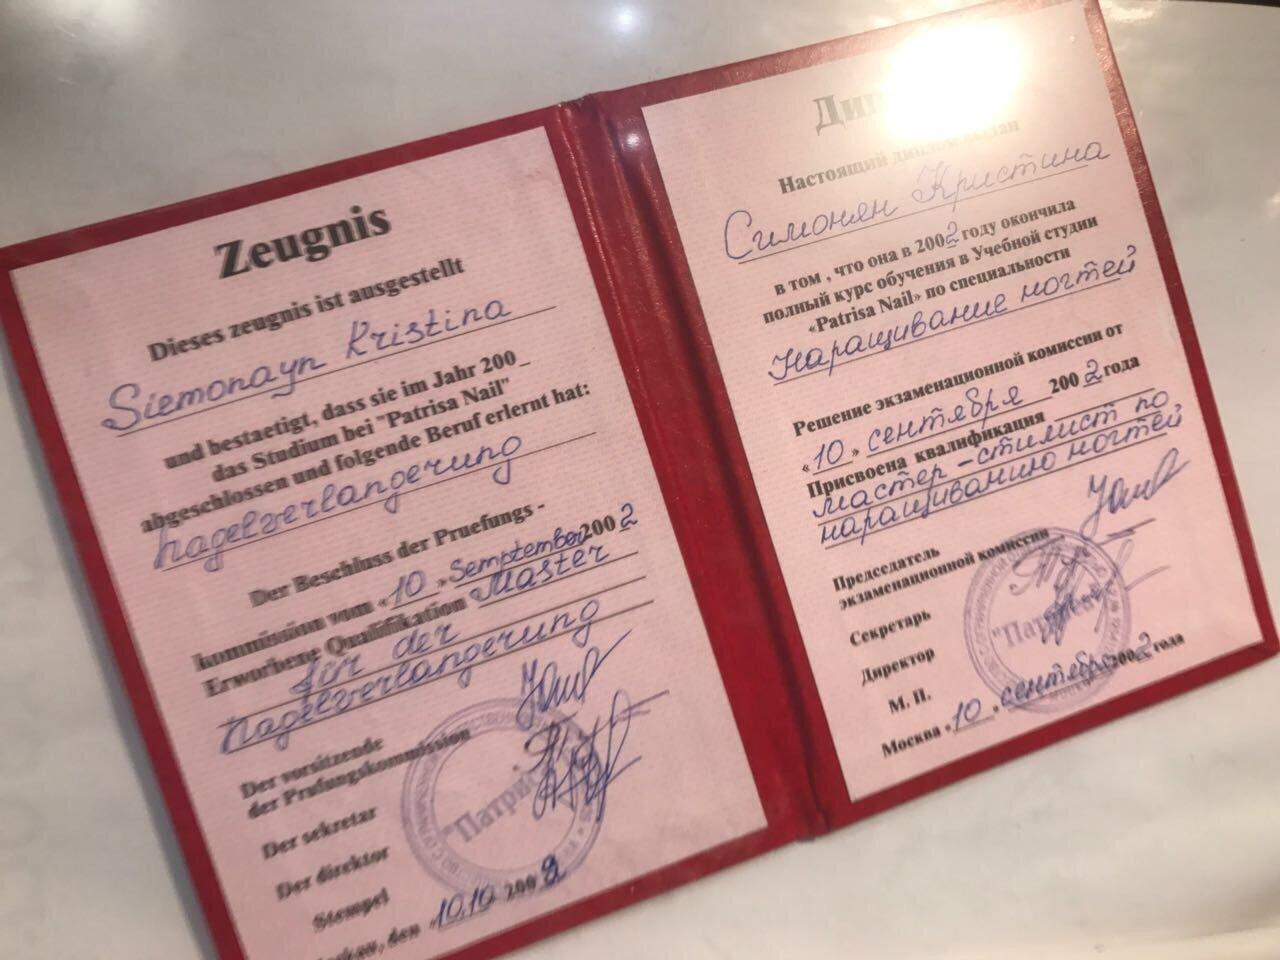 Zeugnis
Dieses zeugnis ist ausgestellt
Siemonayn Kristina
und bestaetigt, dass sie im Jahr 200_
das Studium bei "Patrisa Nail"
abgeschlossen und folgende Beruf erlernt hat:
Nagelverlangerung
Der Beschluss der Pruefungs -
kommission vom «10» Semptember 2002
Erworbene Qualifikation Master
für der
Nagelverlangerung
Der vorsitzende
der Prufungskommission
Der sekretar
Der direktor
Stempel
den «10.10 2002
Настоящий диплом выдан
Симонян Кристина
в том , что она в 2002 году окончила
полный курс обучения в Учебной студии
«Patrisa Nail» по специальности
Наращивание ногтей
Решение экзаменационной комиссии от
«10» сентября 2002 года
Присвоена квалификация
мастер-стилист по
наращиванию ногтей
Председатель
экзаменационной комиссии
Секретарь
Директор
М. П.
Москва «10» сентября 2002 года